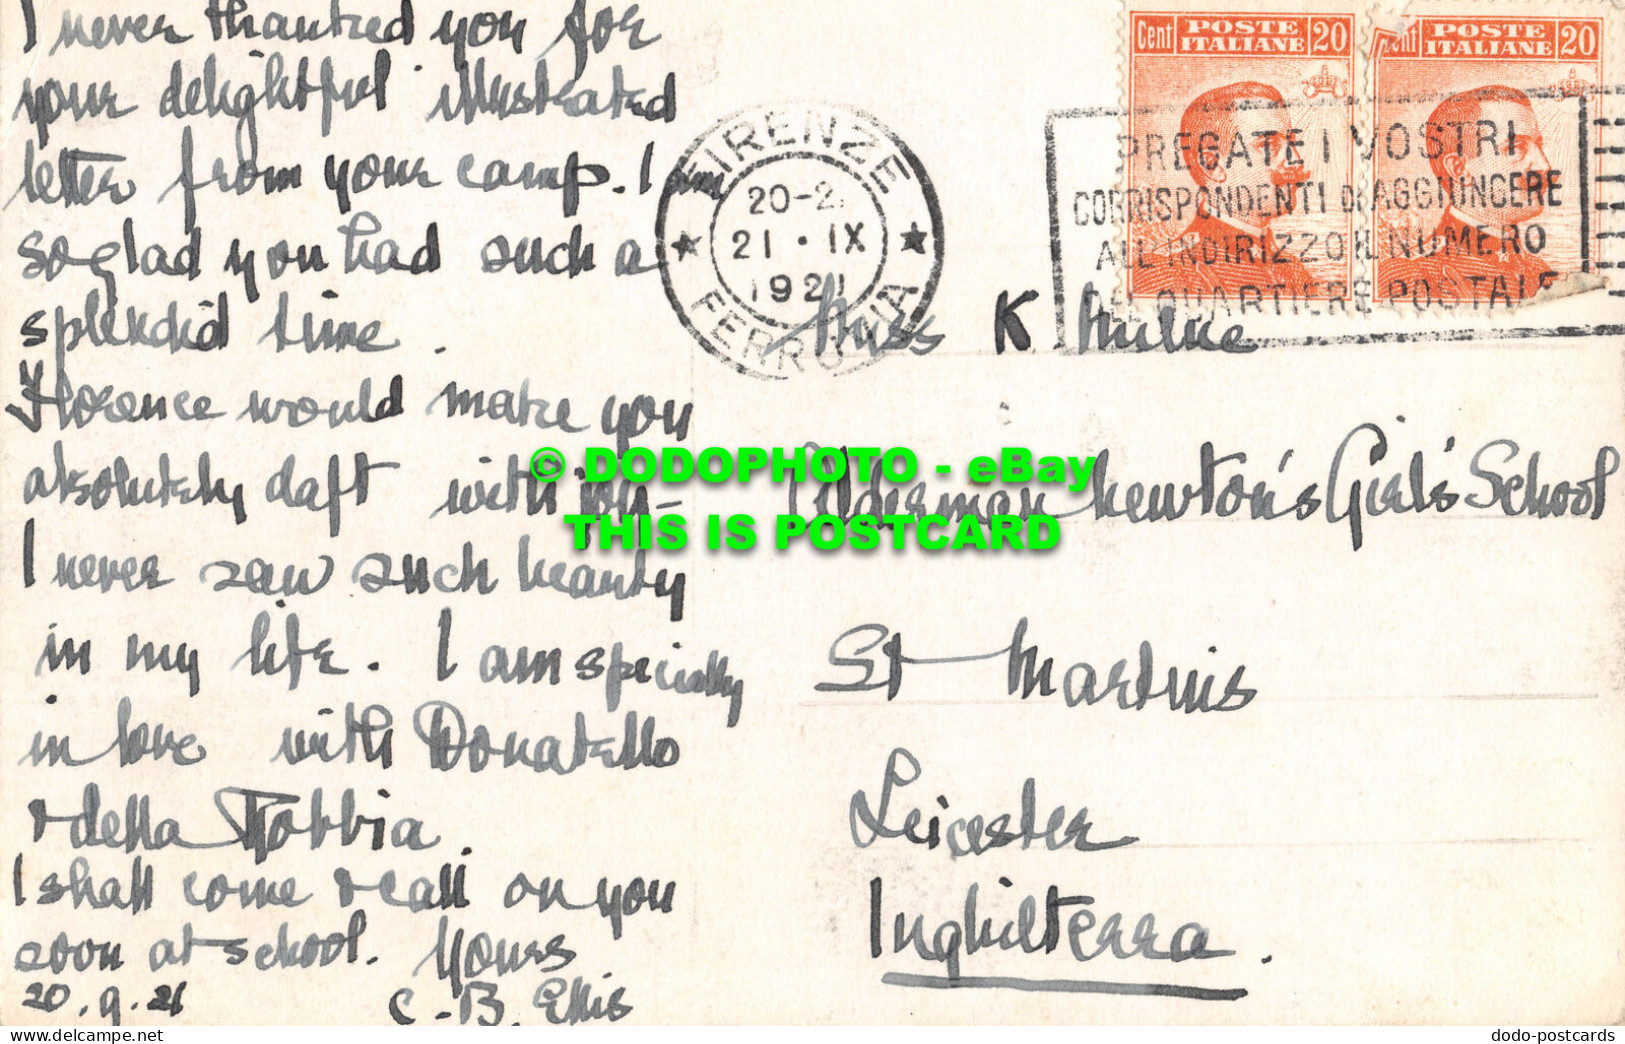 I never thanked you for
your delightful illustrated
letter from your camp. I am
so glad you had such a
splendid time.
Florence would make you
absolutely daft with joy-
I never saw such beauty
in my life. I am specially
in love with Donatello
& della Robbia
I shall come & call on you
soon at school. Yours
20.9.21 C-B. Ellis
FIRENZE
20-2
21 · IX
1921
FERROVIA
Cent POSTE ITALIANE 20
Cent POSTE ITALIANE 20
PREGATE I VOSTRI
CORRISPONDENTI DI AGGIUNGERE
ALL'INDIRIZZO IL NUMERO
DEL QUARTIERE POSTALE
Miss K Milne
Alderman Newton's Girl's School
St Martins
Leicester
Inghilterra.
© DODOPHOTO - eBay
THIS IS POSTCARD
dodo-postcards